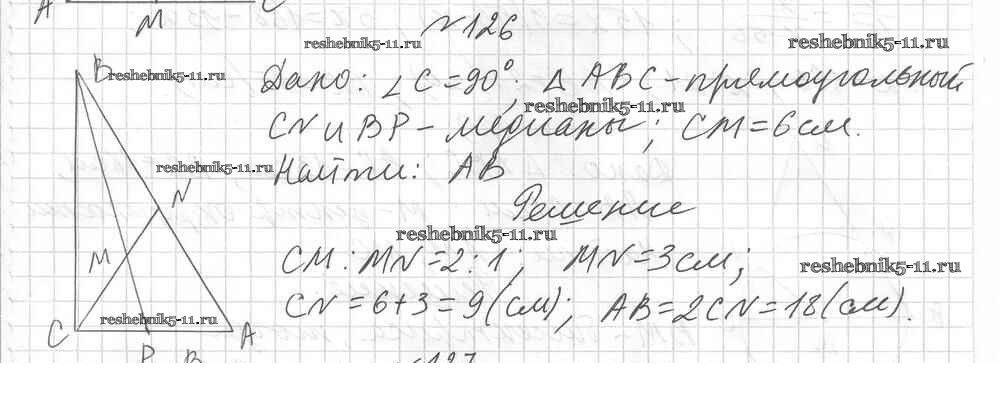 A M C
№126
reshebnik5-11.ru
reshebnik5-11.ru
B
reshebnik5-11.ru
Дано: ∠C=90°; Δ ABC-прямоугольный
reshebnik5-11.ru
CN и BP - медианы; CM=6см.
reshebnik5-11.ru
Найти: AB
N
Решение
reshebnik5-11.ru
M
CM:MN=2:1; MN=3см;
reshebnik5-11.ru
CN=6+3=9(см); AB=2CN=18(см).
reshebnik5-11.ru
C A
P B
№127